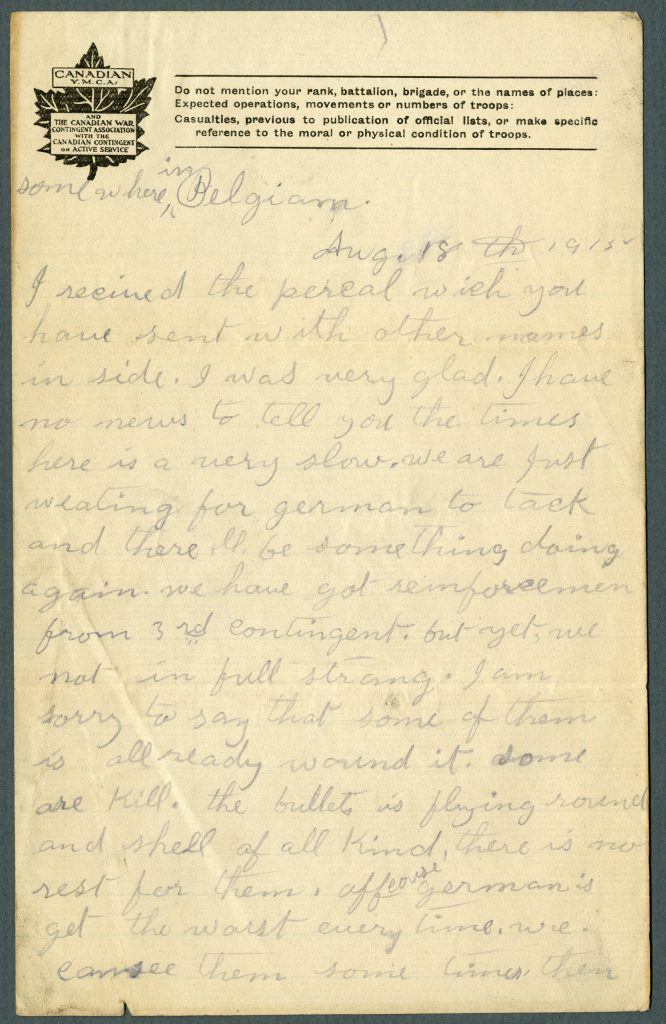 CANADIAN
Y.M.C.A.
AND
THE CANADIAN WAR
CONTINGENT ASSOCIATION
WITH THE
CANADIAN CONTINGENT
ON ACTIVE SERVICE
Do not mention your rank, battalion, brigade, or the names of places:
Expected operations, movements or numbers of troops:
Casualties, previous to publication of official lists, or make specific
reference to the moral or physical condition of troops.
somewhere in Belgiam.
Aug. 18 th 1915
I recived the percal wich you
have sent with other names
in side. I was very glad. I have
no news to tell you the times
here is a very slow. we are Just
weating for german to tack
and there ll be something doing
again. we have got reinforcemen
from 3 rd contingent. but yet, we
not in full strang. I am
sorry to say that some of them
is allready wound it. some
are Kill. the bullets is flying round
and shell of all Kind, there is no
rest for them. off course german is
get the worst every time. we.
can see them some times then